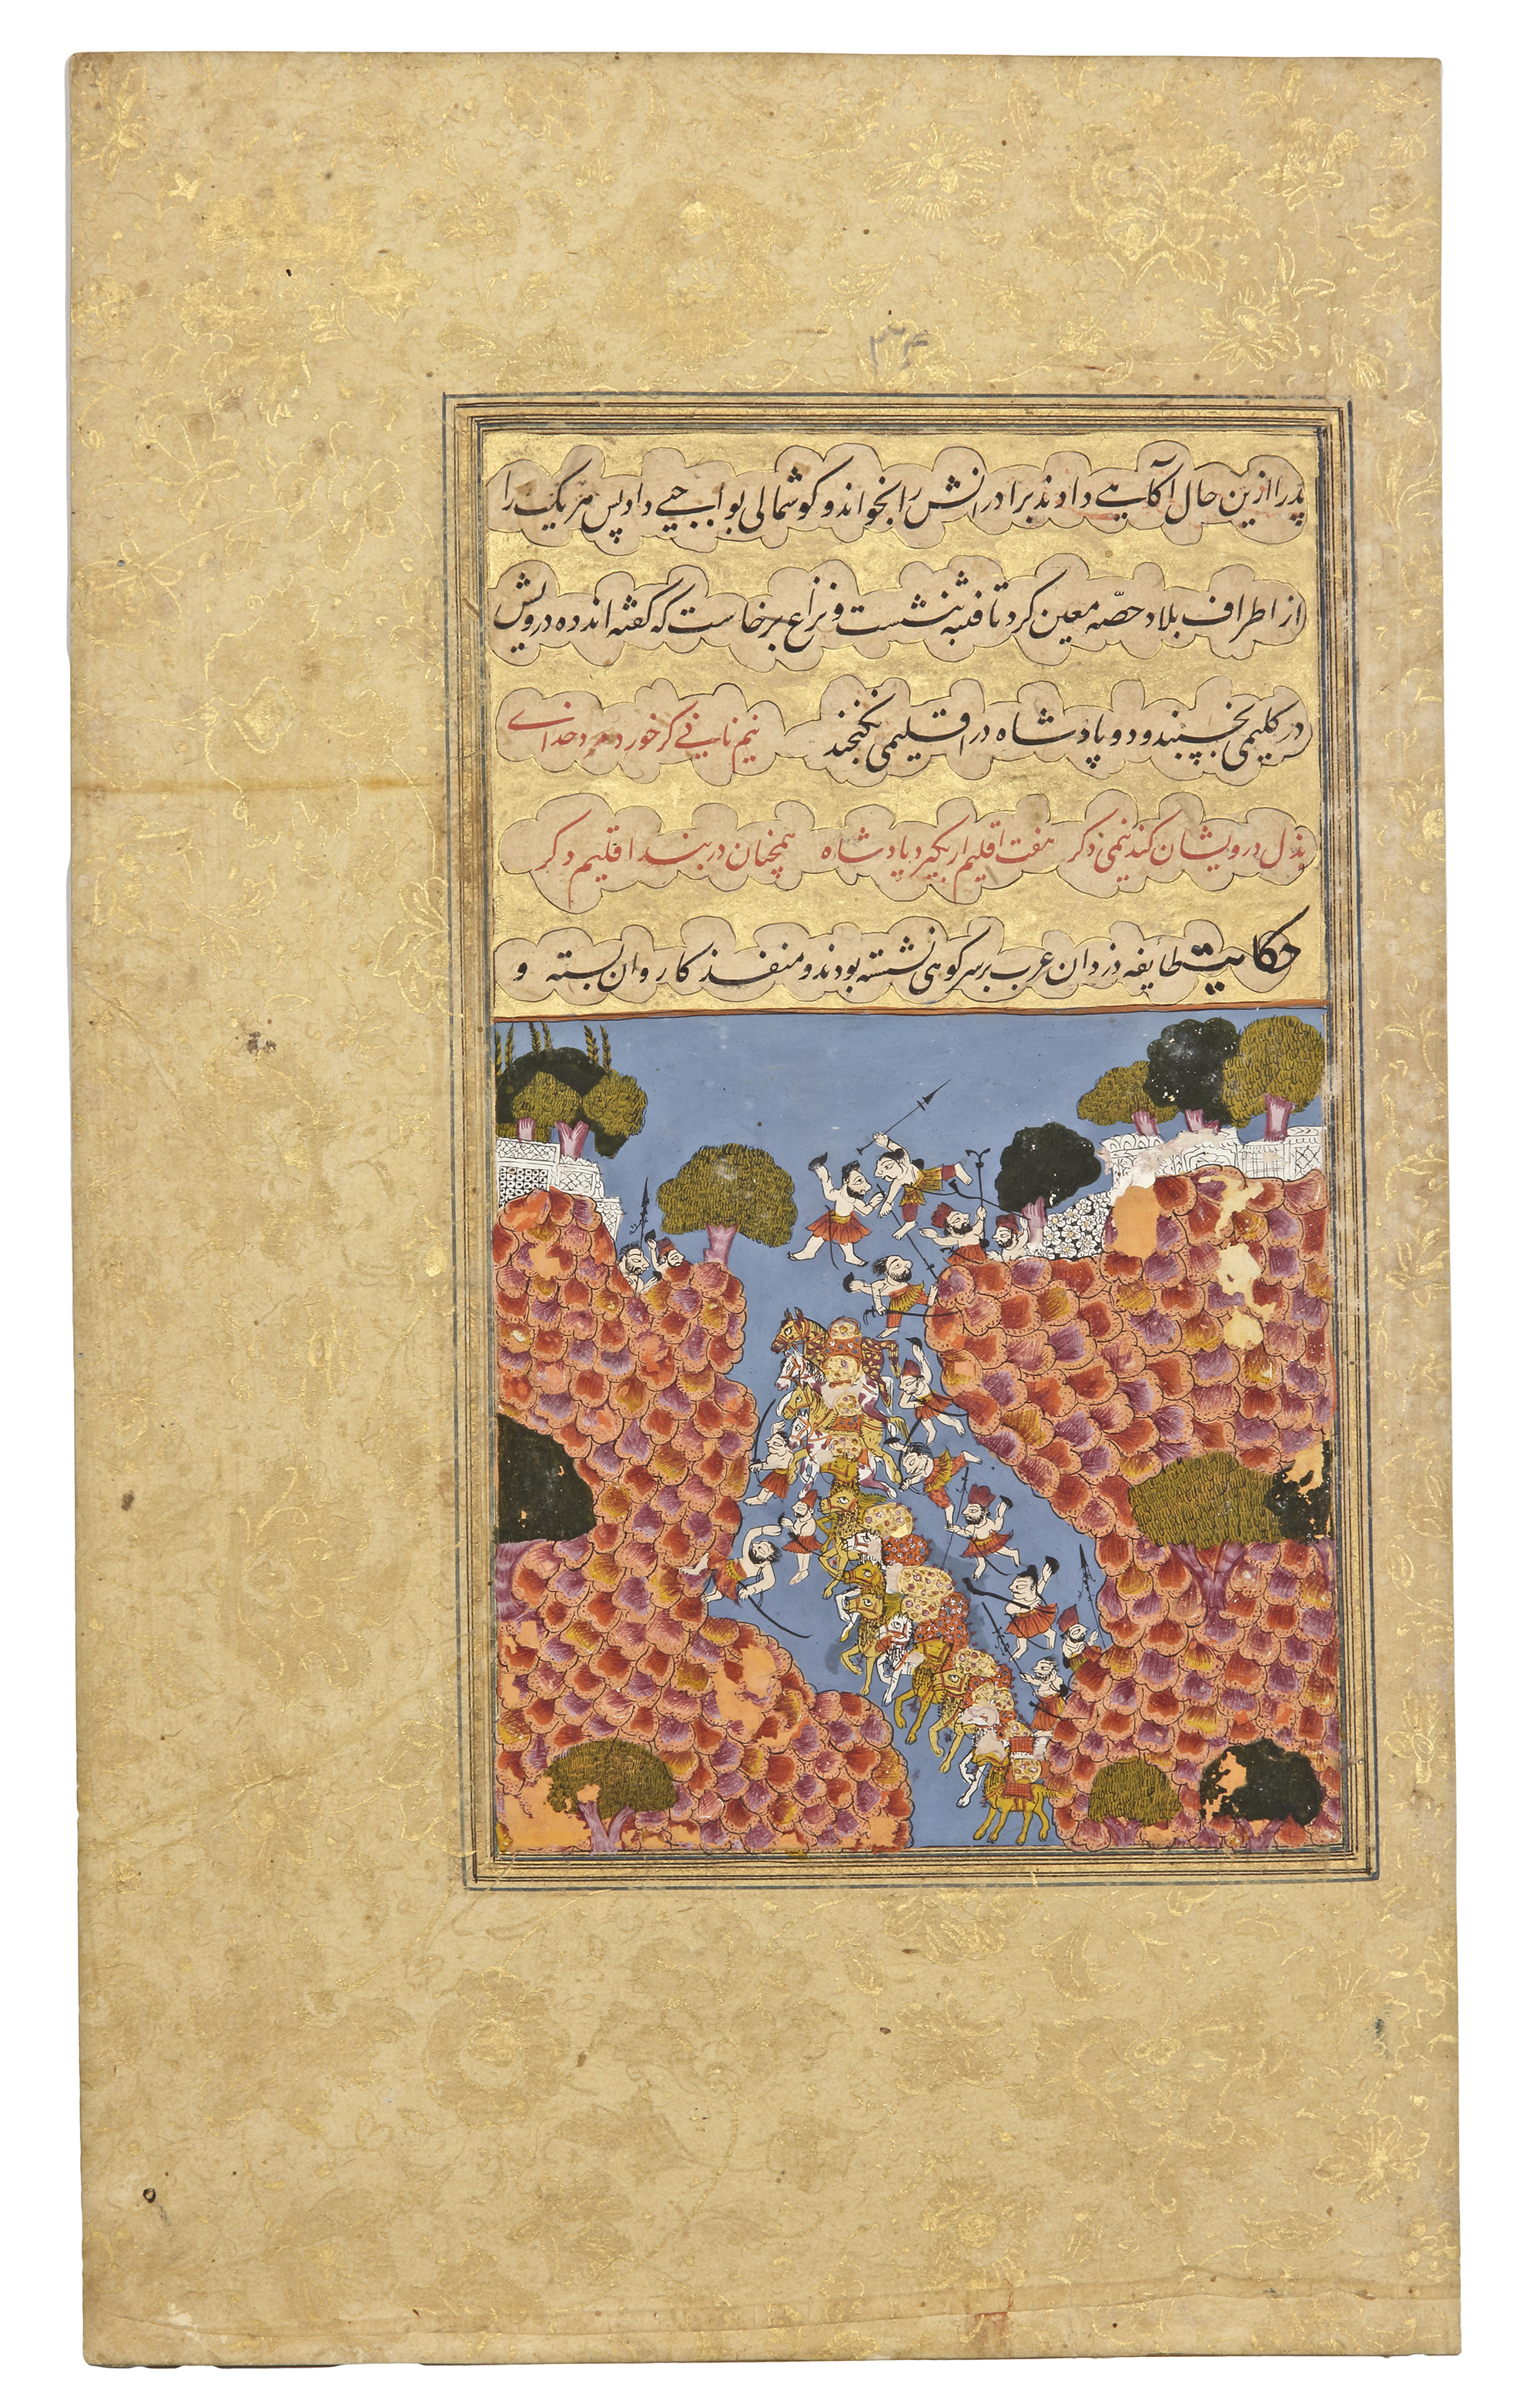 ۳۴
پدر را ازین حال آکاهی دادند برادرانش را بخواند و کوشمالی بواجبی داد پس هر یک را
از اطراف بلاد حصّه معین کرد تا فتنه بنشست و نزاع برخاست که کفته‌اند ده درویش
در کلیمی بخسپند و دو پادشاه در اقلیمی نکنجند نیم نانی کر خورد مرد خدای
بذل درویشان کند نیمی دکر هفت اقلیم ار بکیرد پادشاه همچنان در بند اقلیم دکر
حکایت طایفه دزدان عرب بر سر کوهی نشسته بودند و منفذ کاروان بسته و